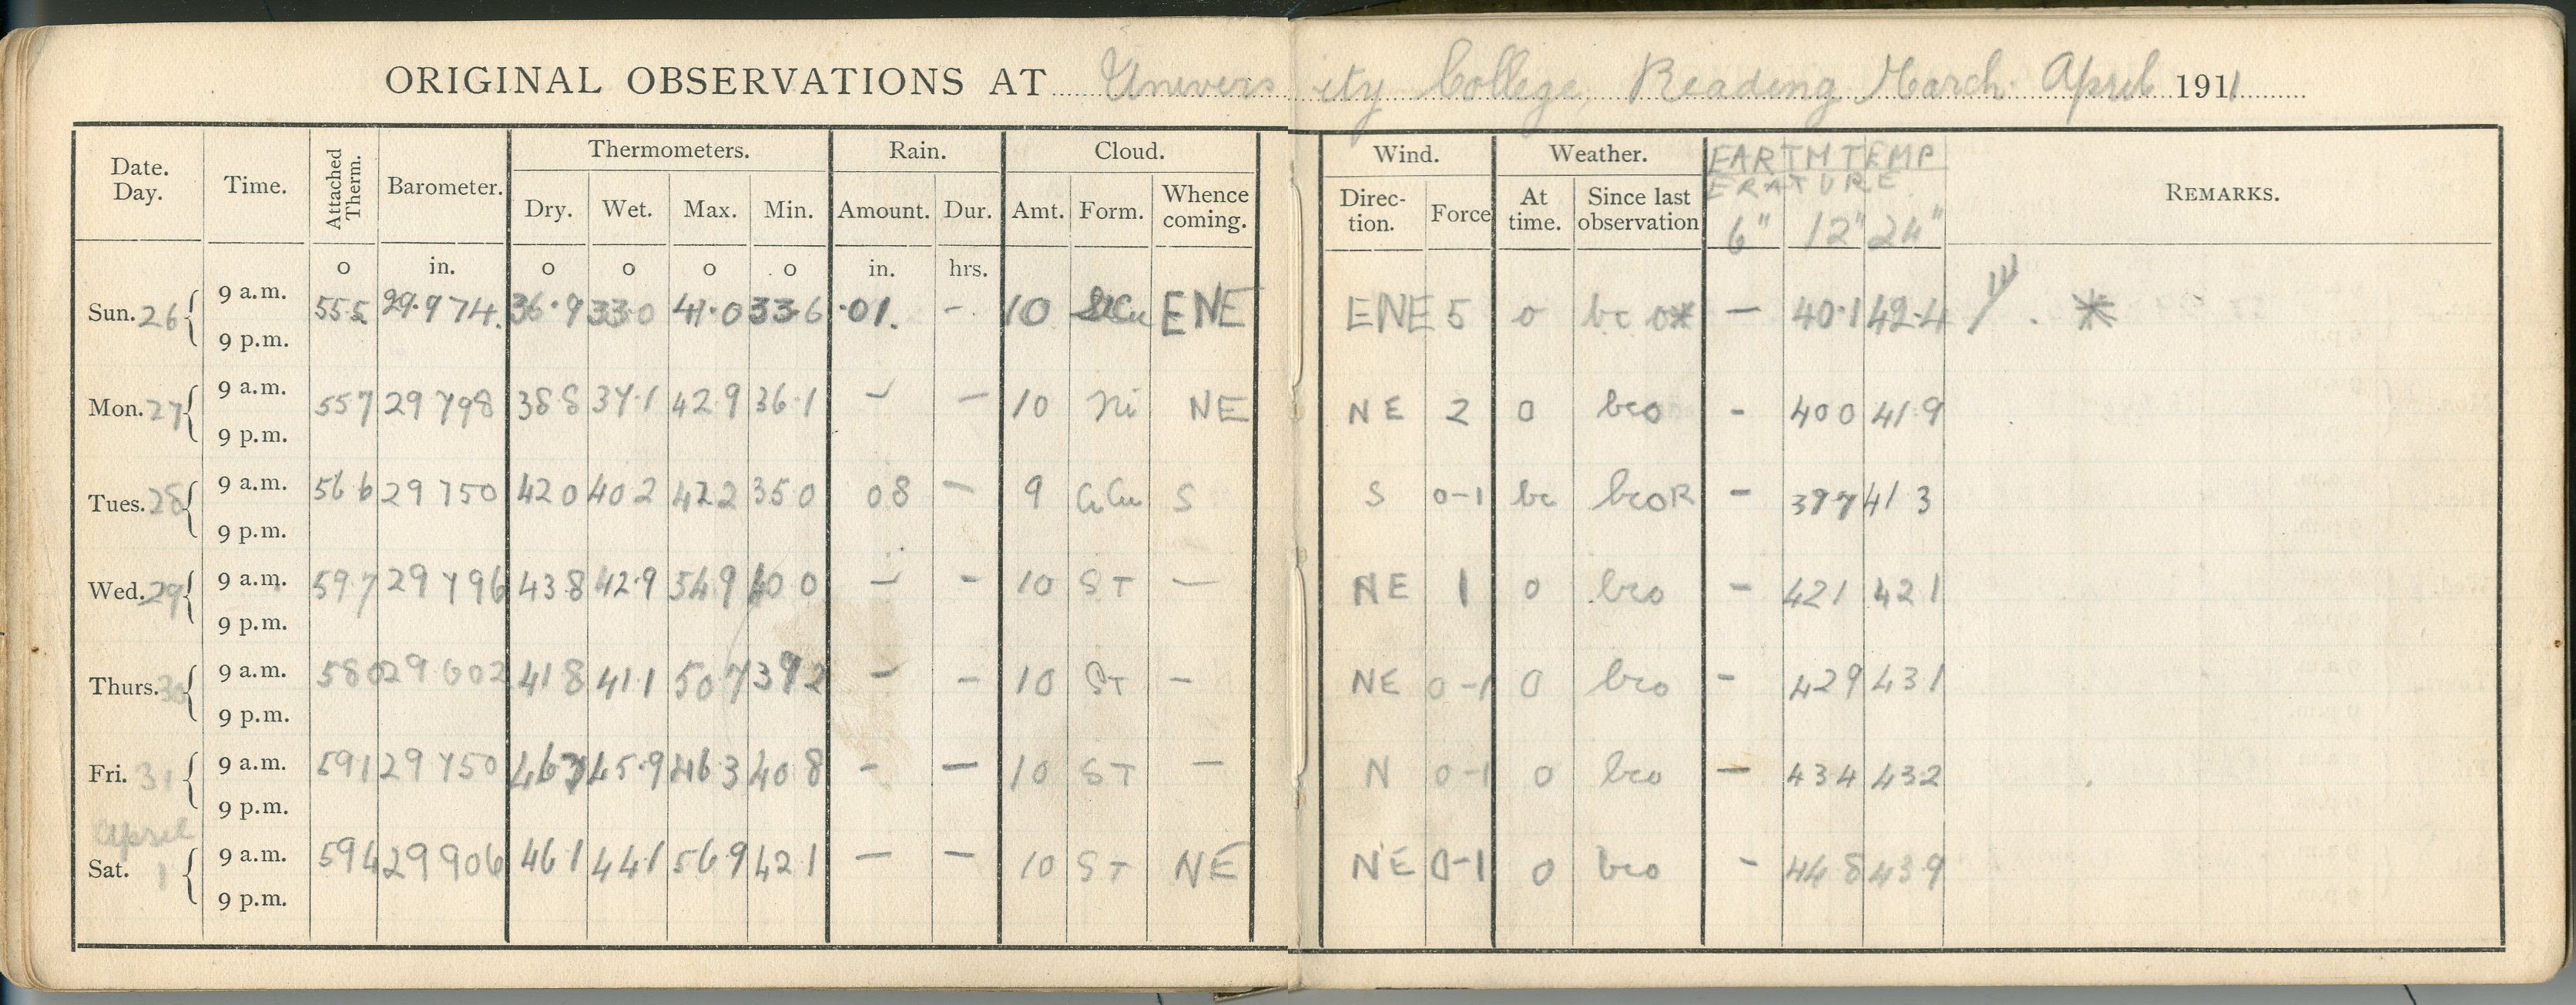 ORIGINAL OBSERVATIONS AT University College, Reading March April 1911
Date. Day. Time. Attached Therm. Barometer. Thermometers. Rain. Cloud. Wind. Weather. EARTH TEMP
ERATURE REMARKS.
Dry. Wet. Max. Min. Amount. Dur. Amt. Form. Whence coming. Direc- tion. Force At time. Since last observation 6" 12" 24"
o in. o o o o in. hrs.
Sun. 26 9 a.m. 55.5 29.974. 36.9 33.0 41.0 33.6 .01. - 10 StCu ENE ENE 5 o bc o* - 40.1 42.4 *
9 p.m.
Mon. 27 9 a.m. 55 7 29 798 38 8 37.1 42 9 36.1 - - 10 Ni NE NE 2 o bco - 40 0 41.9
9 p.m.
Tues. 28 9 a.m. 56 6 29 750 42 0 40 2 42 2 35 0 08 - 9 CiCu S S 0-1 bc bcoR - 39 7 41 3
9 p.m.
Wed. 29 9 a.m. 59 7 29 796 43 8 42.9 54.9 40 0 - - 10 ST - NE 1 o bco - 42 1 42 1
9 p.m.
Thurs. 30 9 a.m. 58 0 29 602 41 8 41 1 50 7 39 2 - - 10 ST - NE 0-1 o bco - 42 9 43 1
9 p.m.
Fri. 31 9 a.m. 59 1 29 750 46 3 45.9 46 3 40 8 - - 10 ST - N 0-1 o bco - 43 4 43 2
9 p.m.
April
Sat. 1 9 a.m. 59 4 29 906 46 1 44.1 56.9 42 1 - - 10 ST NE NE 0-1 o bco - 44 8 43.9
9 p.m.